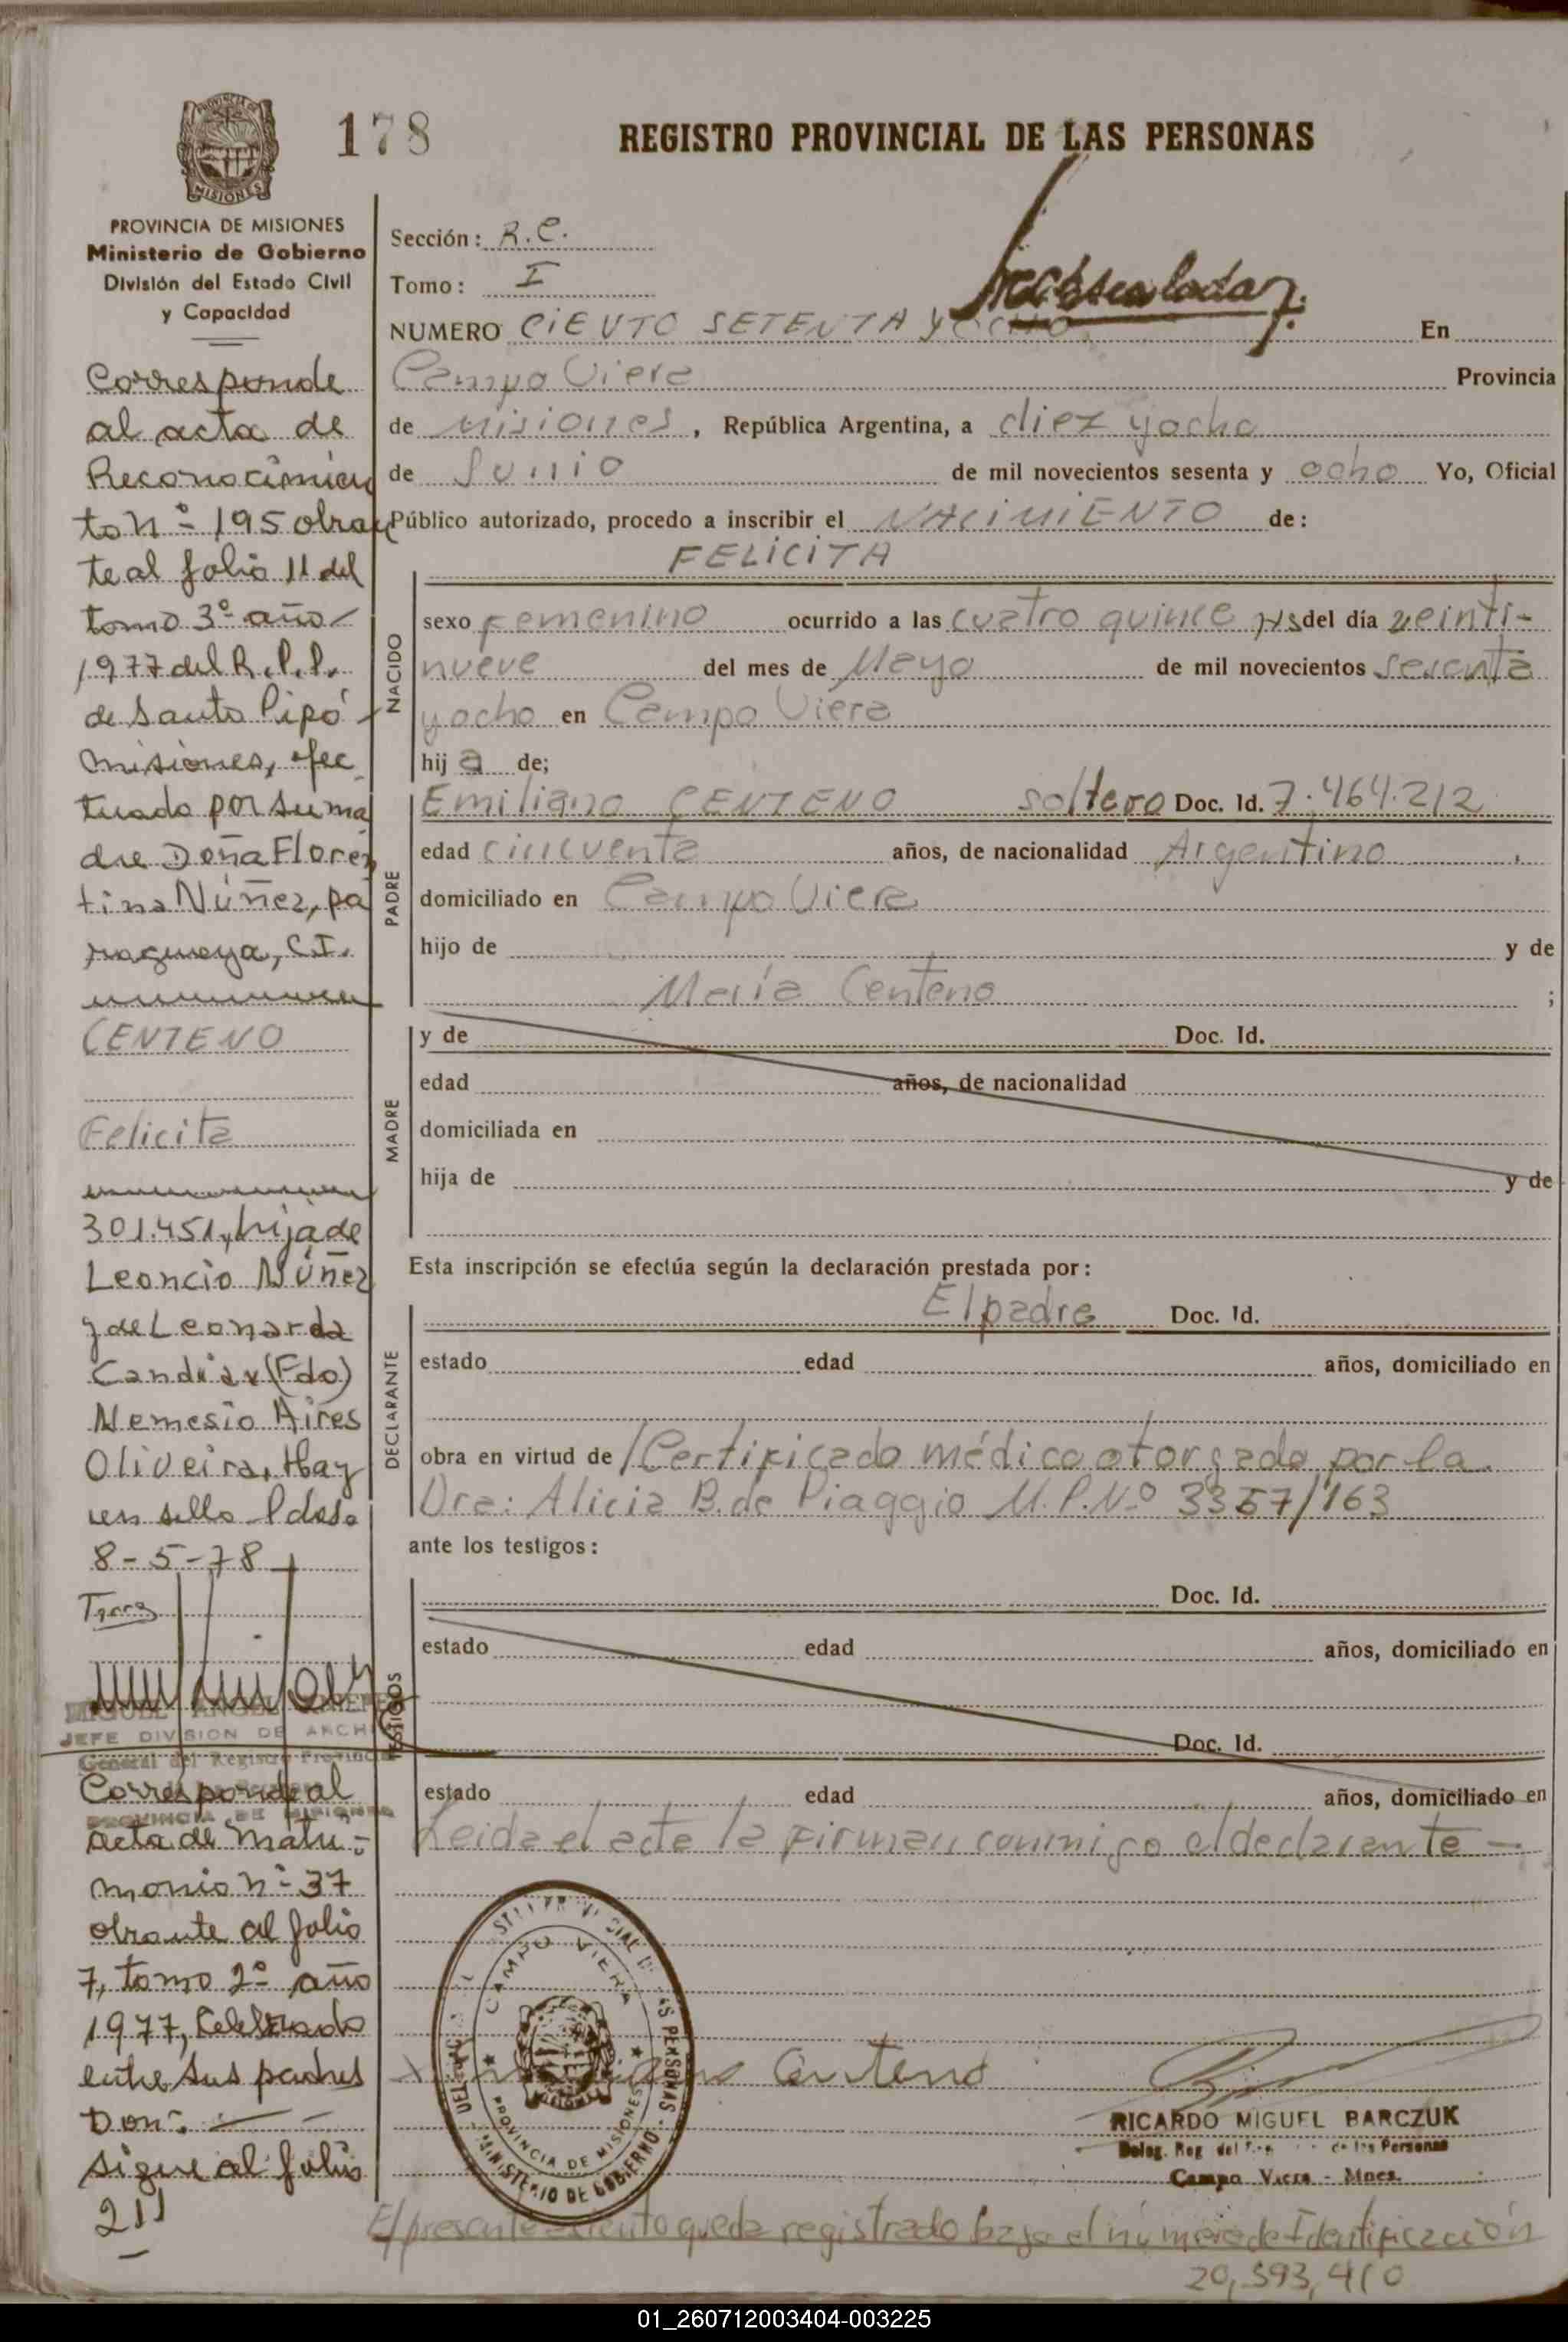 178
REGISTRO PROVINCIAL DE LAS PERSONAS
PROVINCIA DE MISIONES
Ministerio de Gobierno
División del Estado Civil
y Capacidad
Corresponde
al acta de
Reconocimien
to nº 195 obran
te al folio 11 del
tomo 3º año
1977 del R.P.P.
de Santo Pipó
Misiones, efec
tuado por su ma
dre Doña Floren
tina Núñez, pa
raguaya, C.I.
CENTENO
Felicita
301.451, hija de
Leoncio Núñez
y de Leonarda
(Fdo)
Nemesio Aires
Oliveira, Hay
un sello Pdas.
8-5-78
MIGUEL ANGEL
JEFE DIVISION DE ARCHI
General del Registro Provincia
PROVINCIA DE MISIONES
Corresponde al
acta de Matri-
monio nº 37
obrante al folio
7, tomo 2º año
1977, Celebrado
entre sus padres
Don:
sigue al folio
211
Sección: R.C.
Tomo: I
NUMERO CIENTO SETENTA Y OCHO En
Campo Viera Provincia
de Misiones, República Argentina, a diez y ocho
de Junio de mil novecientos sesenta y ocho Yo, Oficial
Público autorizado, procedo a inscribir el NACIMIENTO de:
FELICITA
NACIDO
sexo Femenino ocurrido a las cuatro quince Hs del día veinti-
nueve del mes de Mayo de mil novecientos sesenta
y ocho en Campo Viera
hija de;
PADRE
Emiliano CENTENO soltero Doc. Id. 7.464.212
edad cincuenta años, de nacionalidad Argentino
domiciliado en Campo Viera
hijo de y de
María Centeno ;
MADRE
y de Doc. Id.
edad años, de nacionalidad
domiciliada en
hija de y de
Esta inscripción se efectúa según la declaración prestada por:
DECLARANTE
El padre Doc. Id.
estado edad años, domiciliado en
obra en virtud de Certificado médico otorgado por la
Dra: Alicia B. de Piaggio M.P.Nº 3357/163
ante los testigos:
TESTIGOS
Doc. Id.
estado edad años, domiciliado en
Doc. Id.
estado edad años, domiciliado en
Leida el acta la firman conmigo el declarante -
CAMPO VIERA
PROVINCIA DE MISIONES
MINISTERIO DE GOBIERNO
Centeno
RICARDO MIGUEL BARCZUK
Deleg. Reg. del de las Personas
Campo Viera - Mnes.
El presente asiento queda registrado bajo el número de Identificación
20,593,410
01_260712003404-003225